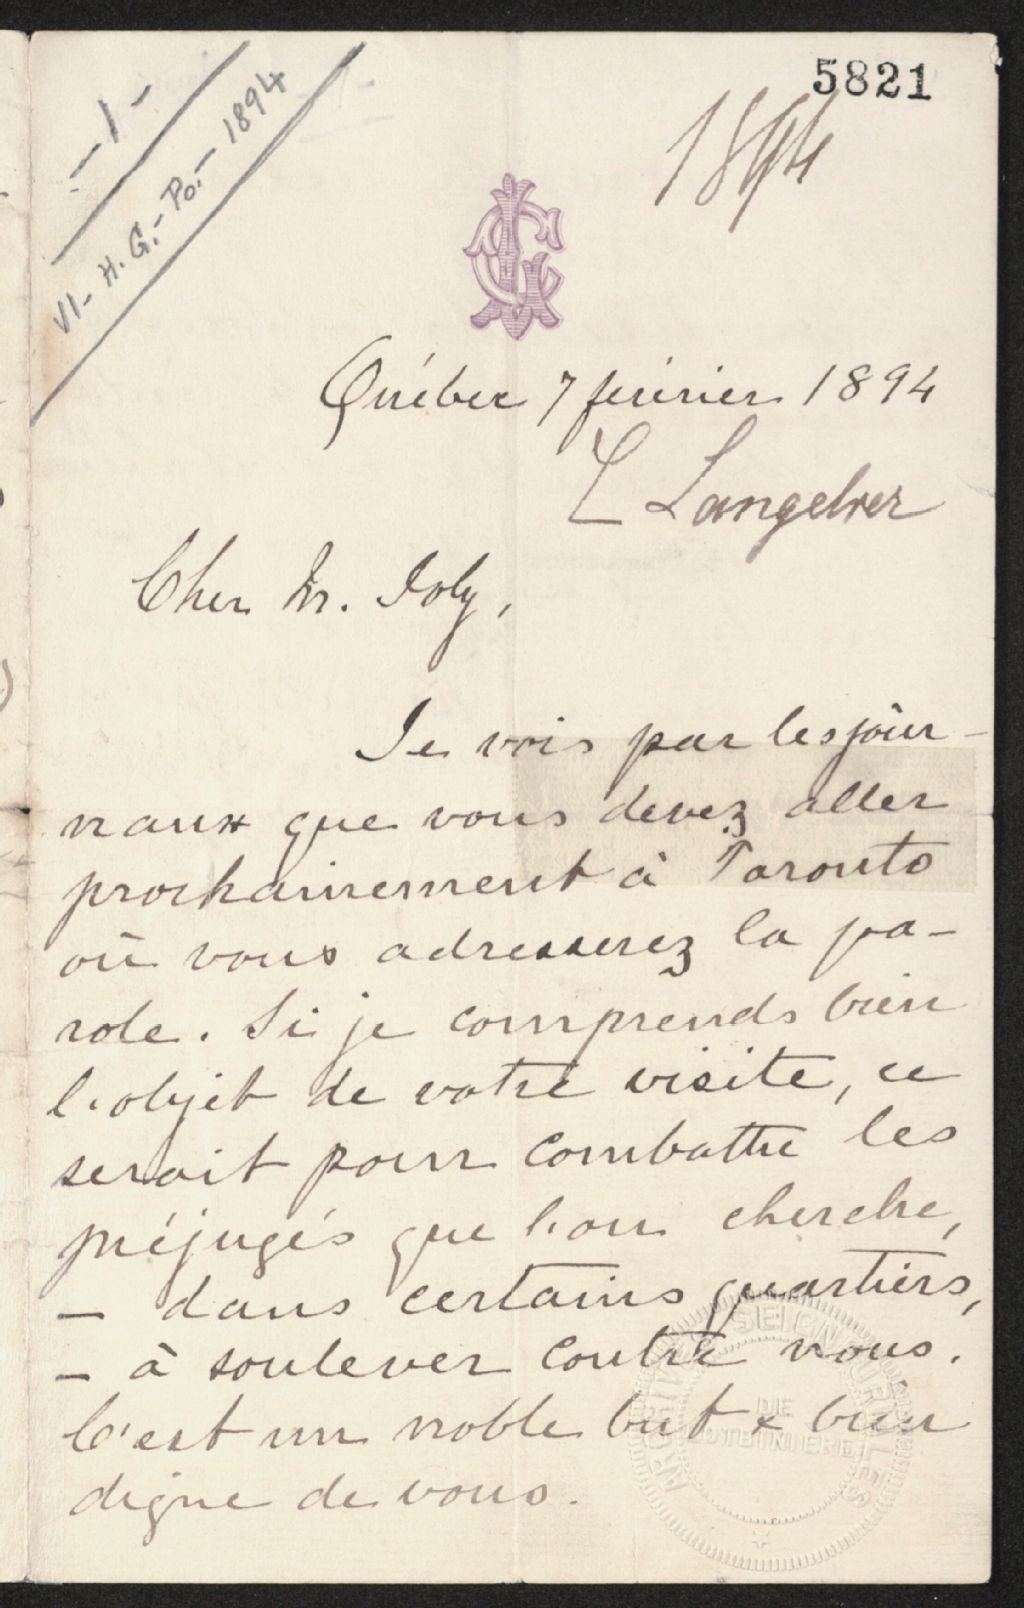 5821
1894
-1-
VI- H.G.- Po.- 1894
Québec 7 février 1894
C Langelier
Cher Mr. Joly,
Je vois par les jour-
naux que vous devez aller
prochainement à Toronto
où vous adresserez la pa-
role. Si je comprends bien
l'objet de votre visite, ce
serait pour combattre les
préjugés que l'on cherche,
- dans certains quartiers,
- à soulever contre nous.
C'est un noble but & bien
digne de vous.
ARCHIVES SEIGNEURIALES
DE
LOTBINIERE